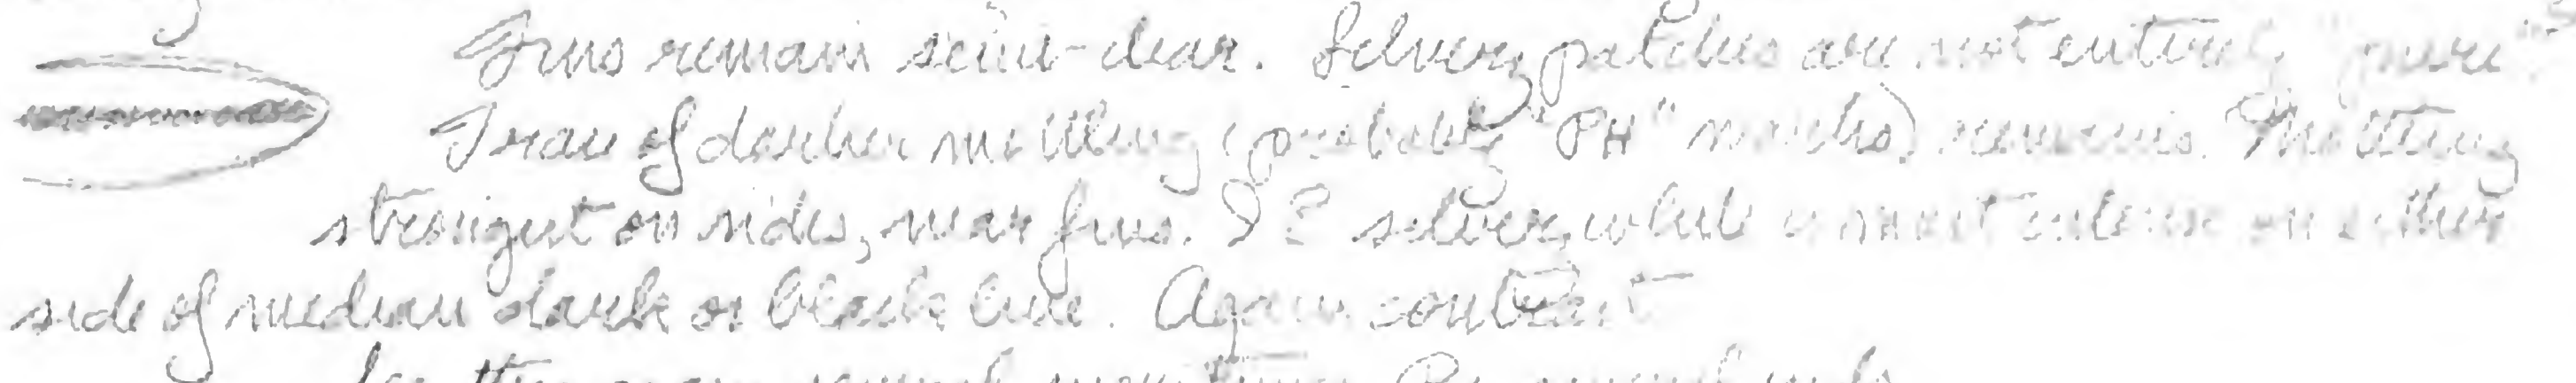 Fins remain semi-clear. Silvery patches are not entirely "pure"
Trace of darker mottling (probably "PH" marks) remains. Mottling
strongest on sides, near fins. I 2 silvery, white is most intense on either
side of median dark or black line. Again contrast